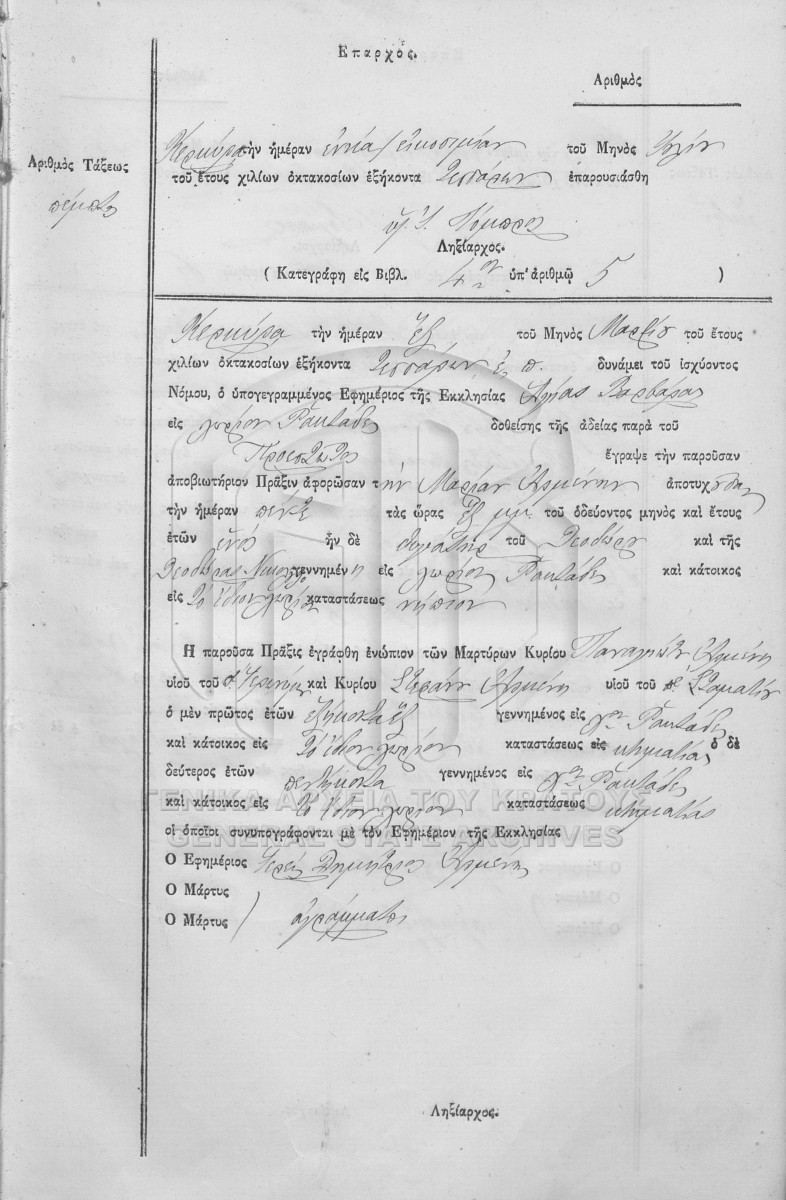 Ἔπαρχος.
Ἀριθμὸς
Ἀριθμὸς Τάξεως
πέμπτος
Κερκύρα τὴν ἡμέραν ἐννέα / εἰκοστμίαν τοῦ Μηνὸς
τοῦ ἔτους χιλίων ὀκτακοσίων ἑξήκοντα τεσσάρων ἐπαρουσιάσθη
Ληξίαρχος.
( Κατεγράφη εἰς Βιβλ. 4 ὑπ' ἀριθμῷ 5 )
Κερκύρα τὴν ἡμέραν ἕξ τοῦ Μηνὸς Μαρτίου τοῦ ἔτους
χιλίων ὀκτακοσίων ἑξήκοντα τεσσάρων ἐ. π. δυνάμει τοῦ ἰσχύοντος
Νόμου, ὁ ὑπογεγραμμένος Ἐφημέριος τῆς Ἐκκλησίας Ἁγίας Βαρβάρας
εἰς χωρίον δοθείσης τῆς ἀδείας παρὰ τοῦ
Προεστῶτος ἔγραψε τὴν παροῦσαν
ἀποβιωτήριον Πρᾶξιν ἀφορῶσαν τὴν Μαρίαν ἀποτυχ
τὴν ἡμέραν πέντε τὰς ὥρας ἕξ μμ. τοῦ ὁδεύοντος μηνὸς καὶ ἔτους
ἐτῶν ἑνός ἦν δὲ θυγάτηρ τοῦ Θεοδώρου καὶ τῆς
Θεοδώρας γεννημένη εἰς χωρίον καὶ κάτοικος
εἰς τὸ ἴδιον χωρίον καταστάσεως νήπιον
Ἡ παροῦσα Πρᾶξις ἐγράφθη ἐνώπιον τῶν Μαρτύρων Κυρίου Παναγιώτη
υἱοῦ τοῦ καὶ Κυρίου Στεφάνου υἱοῦ τοῦ π Σταματίου
ὁ μὲν πρῶτος ἐτῶν ἑξήκοντα ἕξ γεννημένος εἰς
καὶ κάτοικος εἰς τὸ ἴδιον χωρίον καταστάσεως εἰς κτηματίας ὁ δὲ
δεύτερος ἐτῶν πενήκοντα γεννημένος εἰς
καὶ κάτοικος εἰς τὸ ἴδιον χωρίον καταστάσεως κτηματίας
οἱ ὁποῖοι συνυπογράφονται μὲ τὸν Ἐφημέριον τῆς Ἐκκλησίας
Ὁ Ἐφημέριος Ἱερεύς Δημήτριος
Ὁ Μάρτυς
Ὁ Μάρτυς ) ἀγράμματοι
Ληξίαρχος.
ΓΕΝΙΚΑ ΑΡΧΕΙΑ ΤΟΥ ΚΡΑΤΟΥΣ
GENERAL STATE ARCHIVES